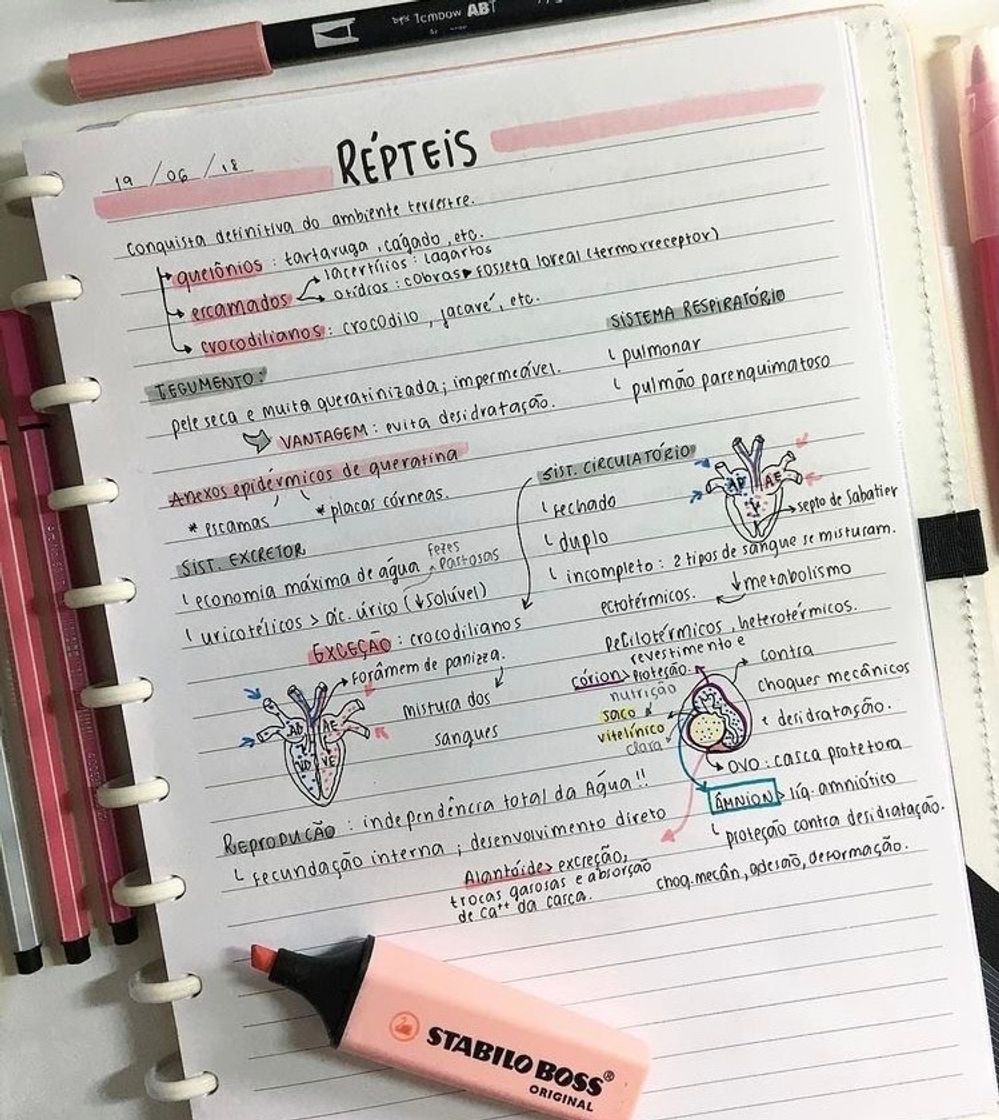 Tombow ABT
19 / 06 / 18
RÉPTEIS
conquista definitiva do ambiente terrestre.
quelônios : tartaruga , cágado , etc.
escamados
lacertílios : lagartos
ofídios : cobras ▸ fosseta loreal (termorreceptor)
crocodilianos : crocodilo , jacaré , etc.
TEGUMENTO :
pele seca e muita queratinizada ; impermeável.
VANTAGEM : evita desidratação.
Anexos epidérmicos de queratina
* escamas
* placas córneas.
SISTEMA RESPIRATÓRIO
pulmonar
pulmão parenquimatoso
SIST. CIRCULATÓRIO
fechado
duplo
incompleto : 2 tipos de sangue se misturam.
AD AE
V
septo de Sabatier
↓ metabolismo
ectotérmicos.
pecilotérmicos , heterotérmicos.
SIST. EXCRETOR
economia máxima de água
fezes
pastosas
uricotélicos > ác. úrico (↓solúvel)
EXCEÇÃO : crocodilianos
Forâmem de panizza.
mistura dos
sangues
AD AE
VD VE
revestimento e
córion > proteção.
nutrição
saco
vitelínico
clara
contra
choques mecânicos
e desidratação.
OVO : casca protetora
ÂMNION > líq. amniótico
proteção contra desidratação.
choq. mecân, adesão, deformação.
REPRODUÇÃO : independência total da Água !!
fecundação interna ; desenvolvimento direto
Alantóide > excreção,
trocas gasosas e absorção
de ca⁺⁺ da casca.
STABILO BOSS®
ORIGINAL